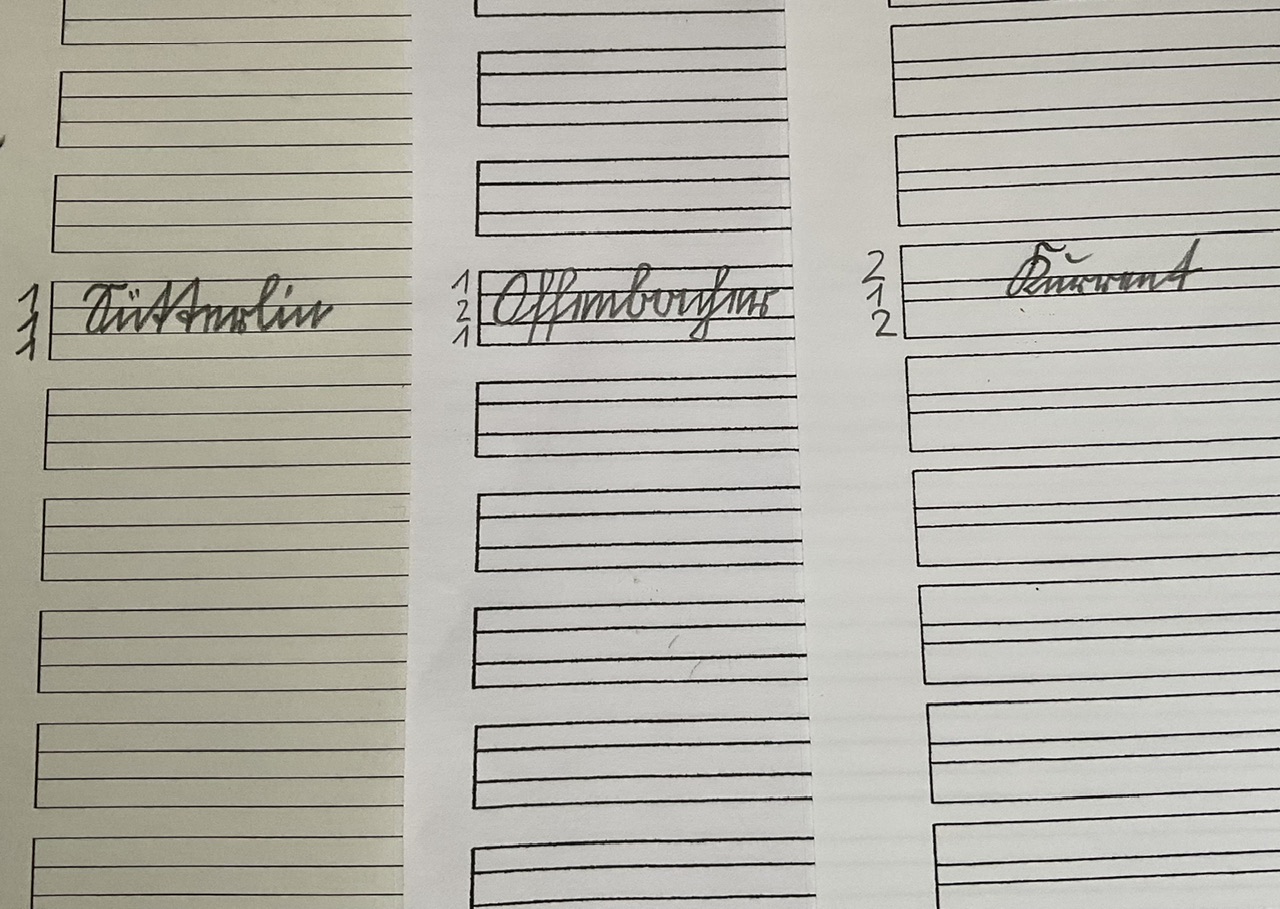 1
1
1
Sütterlin
1
2
1
Offenbacher
2
1
2
Kurrent